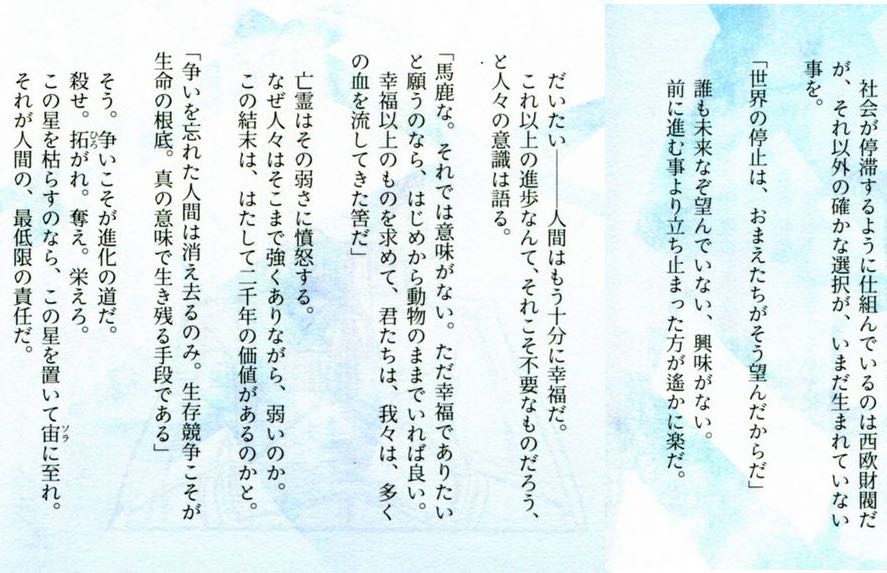 社会が停滞するように仕組んでいるのは西欧財閥だ
が、それ以外の確かな選択が、いまだ生まれていない
事を。
「世界の停止は、おまえたちがそう望んだからだ」
誰も未来なぞ望んでいない、興味がない。
前に進む事より立ち止まった方が遙かに楽だ。
だいたい――人間はもう十分に幸福だ。
これ以上の進歩なんて、それこそ不要なものだろう、
と人々の意識は語る。
「馬鹿な。それでは意味がない。ただ幸福でありたい
と願うのなら、はじめから動物のままでいれば良い。
幸福以上のものを求めて、君たちは、我々は、多く
の血を流してきた筈だ」
亡霊はその弱さに憤怒する。
なぜ人々はそこまで強くありながら、弱いのか。
この結末は、はたして二千年の価値があるのかと。
「争いを忘れた人間は消え去るのみ。生存競争こそが
生命の根底。真の意味で生き残る手段である」
そう。争いこそが進化の道だ。
殺せ。拓(ひろ)がれ。奪え。栄えろ。
この星を枯らすのなら、この星を置いて宙(ソラ)に至れ。
それが人間の、最低限の責任だ。